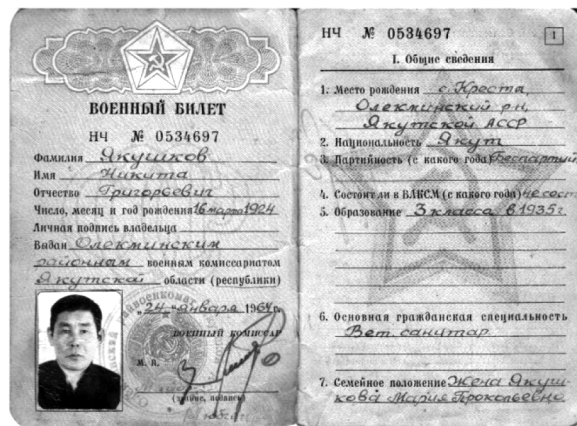 ВОЕННЫЙ БИЛЕТ
НЧ № 0534697
Фамилия Якушков
Имя Никита
Отчество Григорьевич
Число, месяц и год рождения 16 марта 1924
Личная подпись владельца
Выдан Олекминским
районным военным комиссариатом
Якутской области (республики)
"24" января 1964 г.
ВОЕННЫЙ КОМИССАР
М. П.
(звание, подпись)
НЧ № 0534697
1
I. Общие сведения
1. Место рождения с. Креста,
Олекминский р-н,
Якутской АССР
2. Национальность Якут
3. Партийность (с какого года) Беспартий
4. Состоял ли в ВЛКСМ (с какого года) не сост
5. Образование 3 класса в 1935 г.
6. Основная гражданская специальность
Вет. санитар
7. Семейное положение Жена Якуш-
кова Мария Прокопьевно